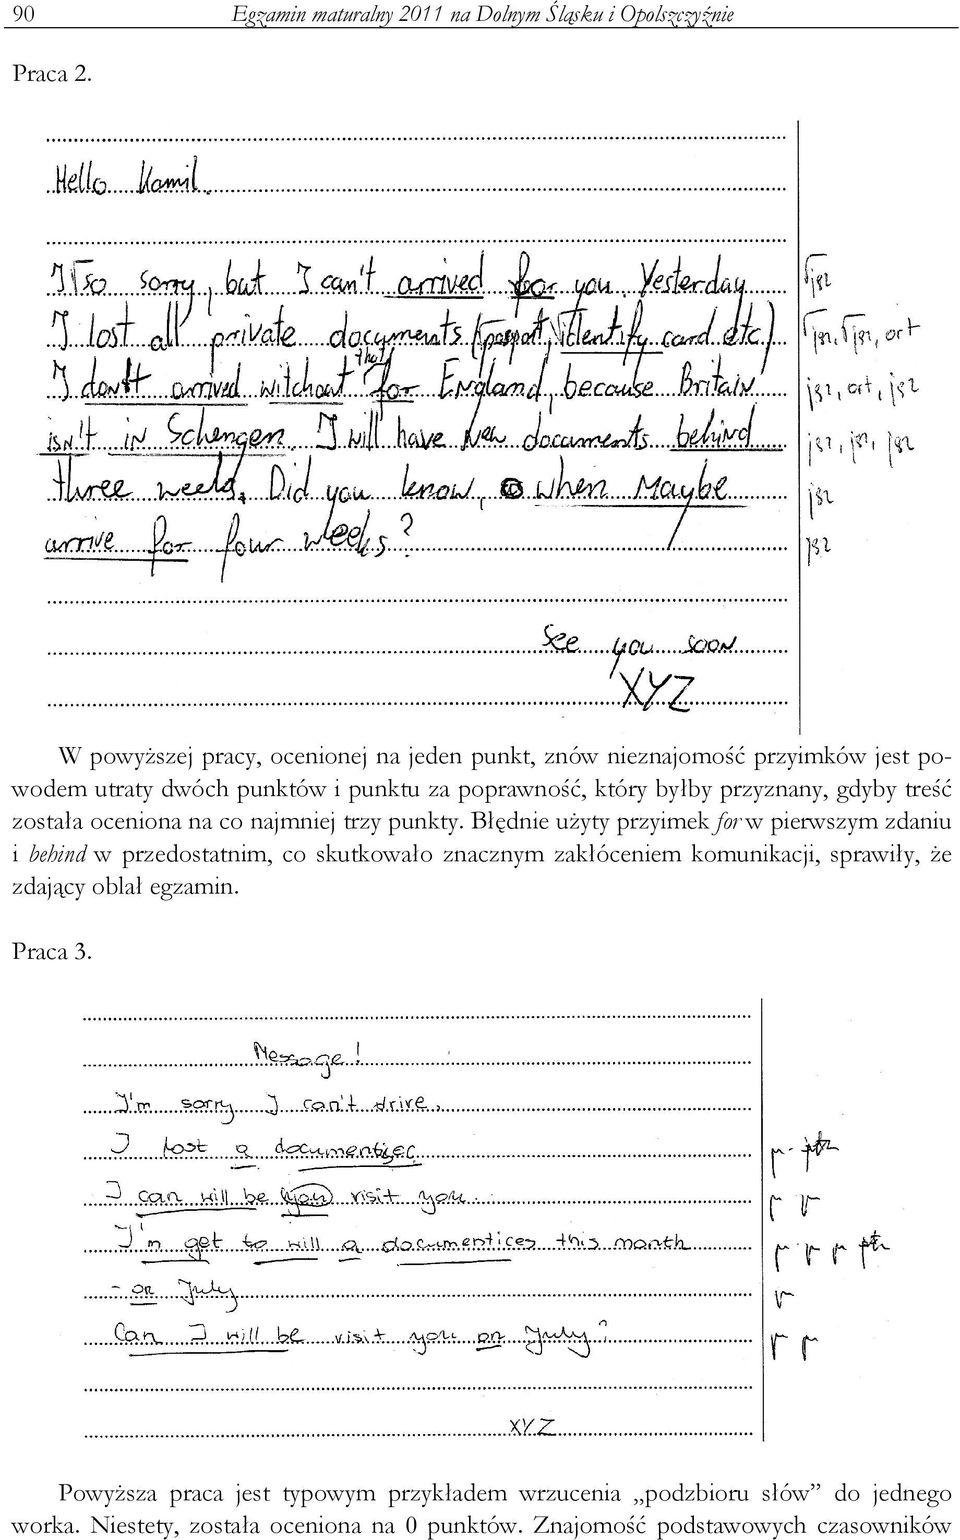 90 Egzamin maturalny 2011 na Dolnym Śląsku i Opolszczyźnie
Praca 2.
Hello Kamil.
I √so sorry, but I can't arrived for you. Yesterday √jęz
I lost all private documents (passport, √identify card etc.) √jęz, √jęz, ort
I donńt arrived witchout that for England, because Britain jęz, ort, jęz
isn't in Schengen. I will have new documents behind jęz, jęz, jęz
three weeks. Did you know, when maybe jęz
arrive for four weeks? jęz
See you soon
XYZ
W powyższej pracy, ocenionej na jeden punkt, znów nieznajomość przyimków jest po-
wodem utraty dwóch punktów i punktu za poprawność, który byłby przyznany, gdyby treść
została oceniona na co najmniej trzy punkty. Błędnie użyty przyimek for w pierwszym zdaniu
i behind w przedostatnim, co skutkowało znacznym zakłóceniem komunikacji, sprawiły, że
zdający oblał egzamin.
Praca 3.
Message!
I'm sorry I can't drive,
I lost a
I can will be you visit you.
I'm get to will a documentices this month
- on July
Can I will be visit you on July?
XYZ
Powyższa praca jest typowym przykładem wrzucenia „podzbioru słów” do jednego
worka. Niestety, została oceniona na 0 punktów. Znajomość podstawowych czasowników